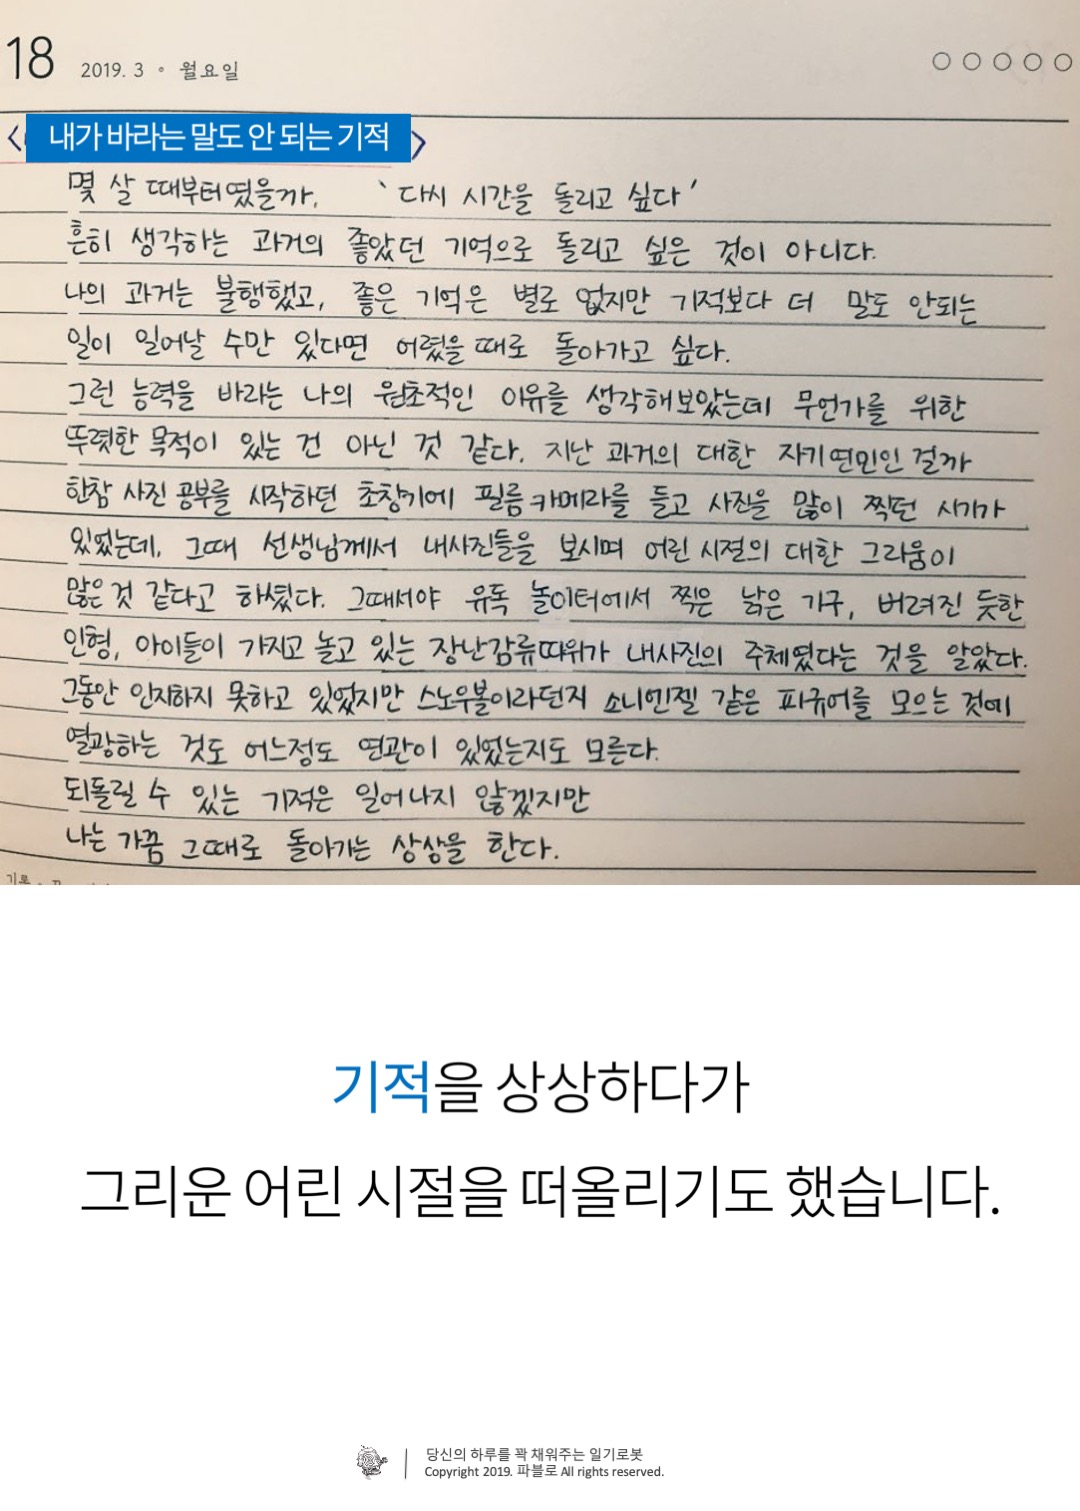 18 2019. 3 • 월요일 ○ ○ ○ ○ ○
< 내가 바라는 말도 안 되는 기적 >
몇 살 때부터였을까. '다시 시간을 돌리고 싶다'
흔히 생각하는 과거의 좋았던 기억으로 돌리고 싶은 것이 아니다.
나의 과거는 불행했고, 좋은 기억은 별로 없지만 기적보다 더 말도 안되는
일이 일어날 수만 있다면 어렸을때로 돌아가고 싶다.
그런 능력을 바라는 나의 원초적인 이유를 생각해보았는데 무언가를 위한
뚜렷한 목적이 있는 건 아닌 것 같다. 지난 과거의 대한 자기연민인 걸까
한참 사진 공부를 시작하던 초창기에 필름카메라를 들고 사진을 많이 찍던 시기가
있었는데, 그때 선생님께서 내사진들을 보시며 어린시절의 대한 그리움이
많은것 같다고 하셨다. 그때서야 유독 놀이터에서 찍은 낡은 기구, 버려진 듯한
인형, 아이들이 가지고 놀고 있는 장난감류따위가 내사진의 주체였다는 것을 알았다.
그동안 인지하지 못하고 있었지만 스노우볼이라던지 소니엔젤 같은 피규어를 모으는 것에
열광하는 것도 어느정도 연관이 있었는지도 모른다.
되돌릴 수 있는 기적은 일어나지 않겠지만
나는 가끔 그때로 돌아가는 상상을 한다.
기록
기적을 상상하다가
그리운 어린 시절을 떠올리기도 했습니다.
당신의 하루를 꽉 채워주는 일기로봇
Copyright 2019. 파블로 All rights reserved.